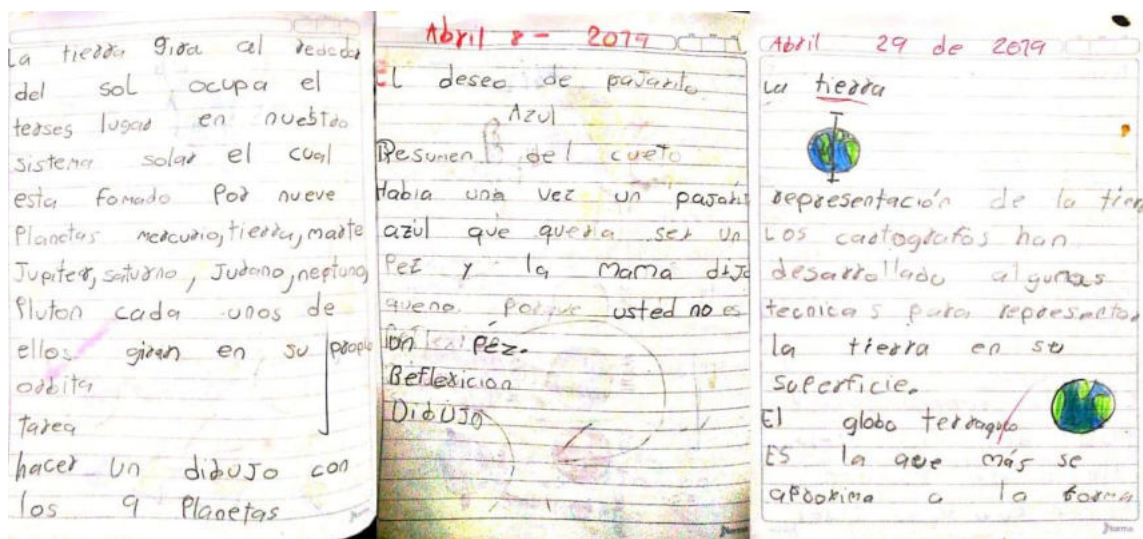 La tierra gira al rededor
del sol ocupa el
terses lugar en nuestro
sistema solar el cual
esta fomado por nueve
Planetas mercurio, tierra, marte
Jupiter, saturno, Jurano, neptuno,
Pluton cada unos de
ellos giran en su propio
orbita
tarea
hacer un dibujo con
los 9 Planetas
Norma
Abril 8 - 2019
El deseo de pajarito
Azul
Resumen del cueto
Habia una vez un pajarit
azúl que queria ser un
Pez y la mama dijo
queno porque usted no es
un péz.
Reflexicion
Dibujo
Abril 29 de 2019
La tierra
representación de la tierr
Los cartografos han
desarrollado algunas
tecnicas para representar
la tierra en su
superficie.
El globo terraquio
ES la que más se
aproxima a la forma
Norma